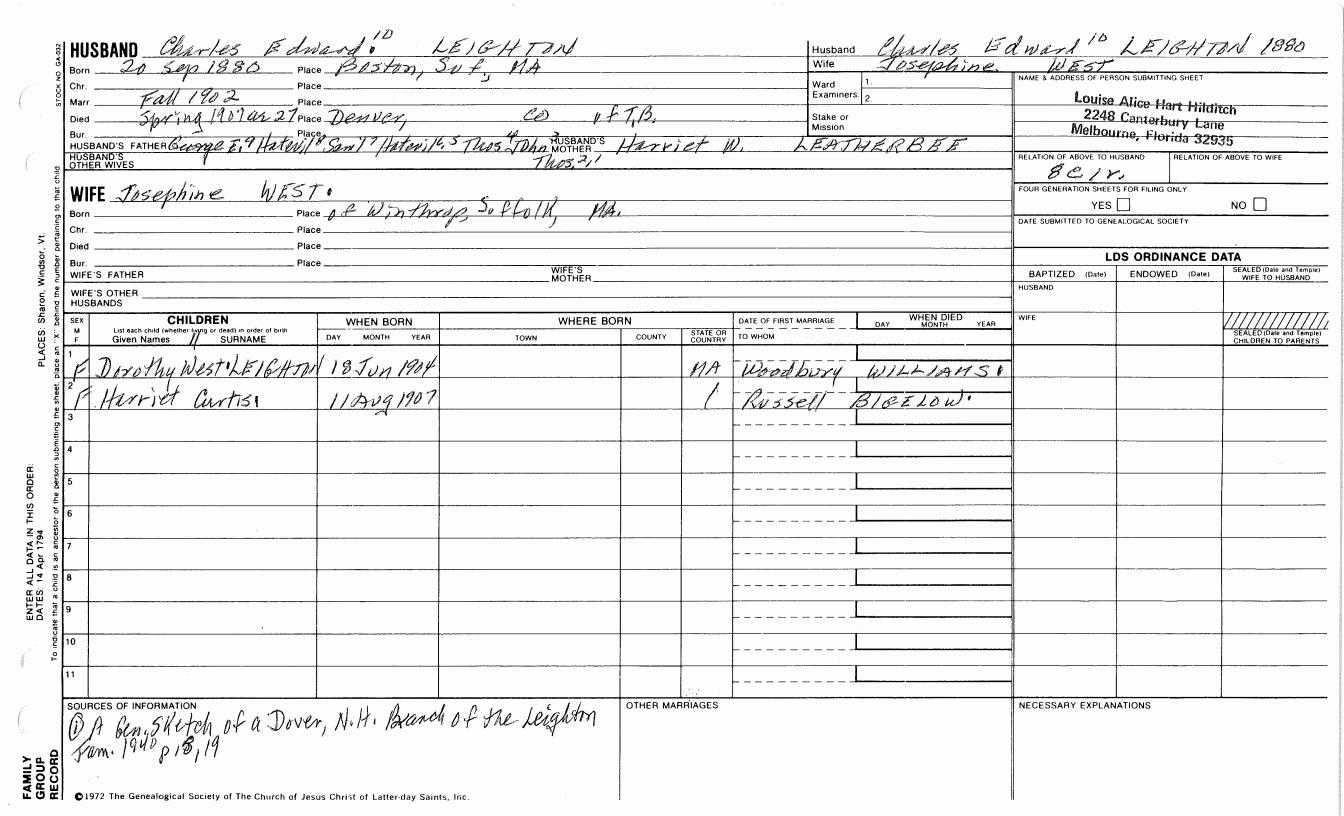 HUSBAND Charles Edward 10 LEIGHTON
Husband Charles Edward 10 LEIGHTON 1880
Wife Josephine WEST
Born 20 Sep 1880 Place Boston, Suf, MA
Chr. Place
Marr Fall 1902 Place
Died Spring 1907 ae 27 Place Denver, CO of T.B.
Bur. Place
HUSBAND'S FATHER George E.9 Hatevil8 Saml7 Hatevil6,5 Thos4 John3 Thos.2,1
HUSBAND'S MOTHER Harriet W. LEATHERBEE
HUSBAND'S OTHER WIVES
Ward Examiners
1.
2.
Stake or Mission
NAME & ADDRESS OF PERSON SUBMITTING SHEET
Louise Alice Hart Hilditch
2248 Canterbury Lane
Melbourne, Florida 32935
RELATION OF ABOVE TO HUSBAND RELATION OF ABOVE TO WIFE
8C1r.
FOUR GENERATION SHEETS FOR FILING ONLY
YES NO
DATE SUBMITTED TO GENEALOGICAL SOCIETY
WIFE Josephine WEST
Born Place of Winthrop, Suffolk, MA.
Chr. Place
Died Place
Bur. Place
WIFE'S FATHER WIFE'S MOTHER
WIFE'S OTHER HUSBANDS
LDS ORDINANCE DATA
BAPTIZED (Date) ENDOWED (Date) SEALED (Date and Temple) WIFE TO HUSBAND
HUSBAND
WIFE
SEALED (Date and Temple) CHILDREN TO PARENTS
SEX M F
CHILDREN
List each child (whether living or dead) in order of birth
Given Names SURNAME
WHEN BORN
DAY MONTH YEAR
WHERE BORN
TOWN COUNTY STATE OR COUNTRY
DATE OF FIRST MARRIAGE
TO WHOM
WHEN DIED
DAY MONTH YEAR
1 F Dorothy West LEIGHTON 18 Jun 1904 MA Woodbury WILLIAMS
2 F Harriet Curtis 11 Aug 1907 Russell BIGELOW
3
4
5
6
7
8
9
10
11
SOURCES OF INFORMATION
① A Gen. Sketch of a Dover, N.H. Branch of the Leighton
Fam. 1940 p 18, 19
OTHER MARRIAGES
NECESSARY EXPLANATIONS
©1972 The Genealogical Society of The Church of Jesus Christ of Latter-day Saints, Inc.
STOCK NO. GA-032
To indicate that a child is an ancestor of the person submitting the sheet, place an "X" behind the number pertaining to that child
PLACES: Sharon, Windsor, Vt.
ENTER ALL DATA IN THIS ORDER:
DATES: 14 Apr 1794
FAMILY
GROUP
RECORD